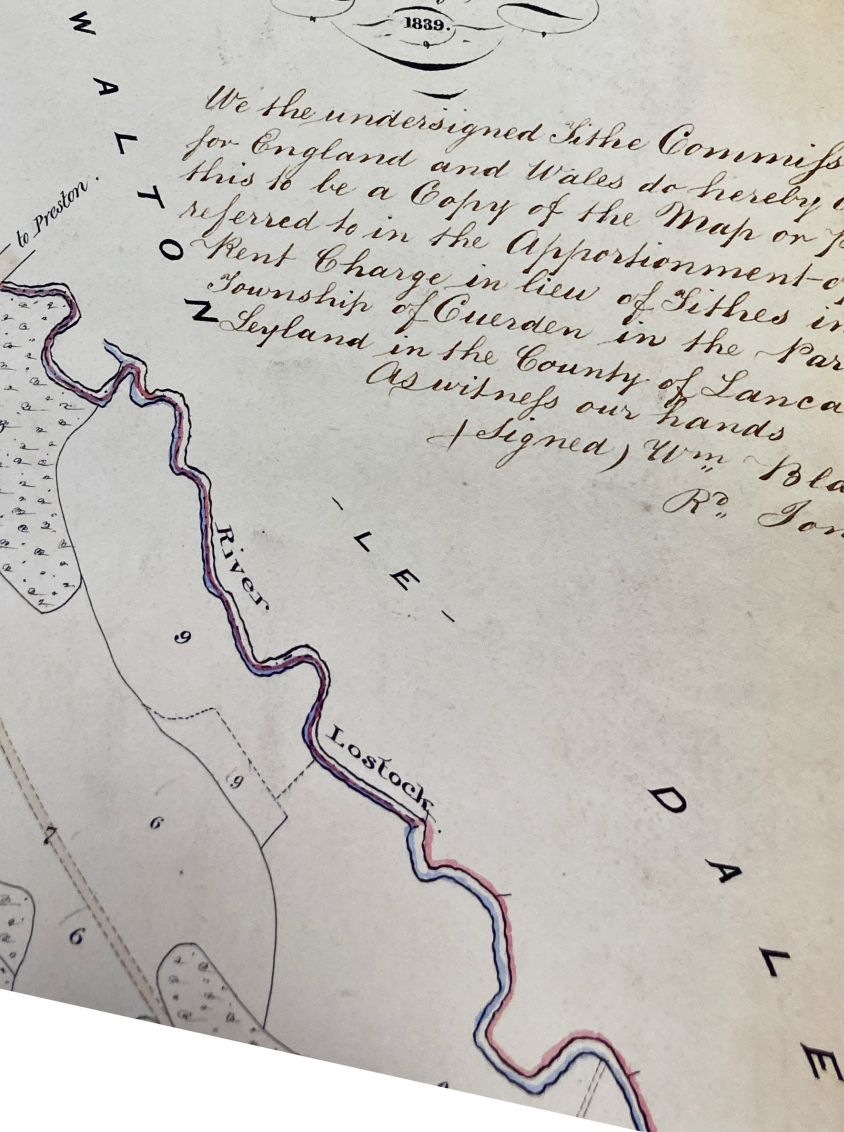 1839.
WALTON
We the undersigned Tithe Commiss
for England and Wales do hereby
this to be a Copy of the Map or
referred to in the Apportionment
Rent Charge in lieu of Tithes in
Township of Cuerden in the Par
Leyland in the County of Lanca
As witness our hands
(Signed) Wm. Bla
Rd. Jon
to Preston.
- LE -
River
9
Lostock.
9
6
7
6
DALE